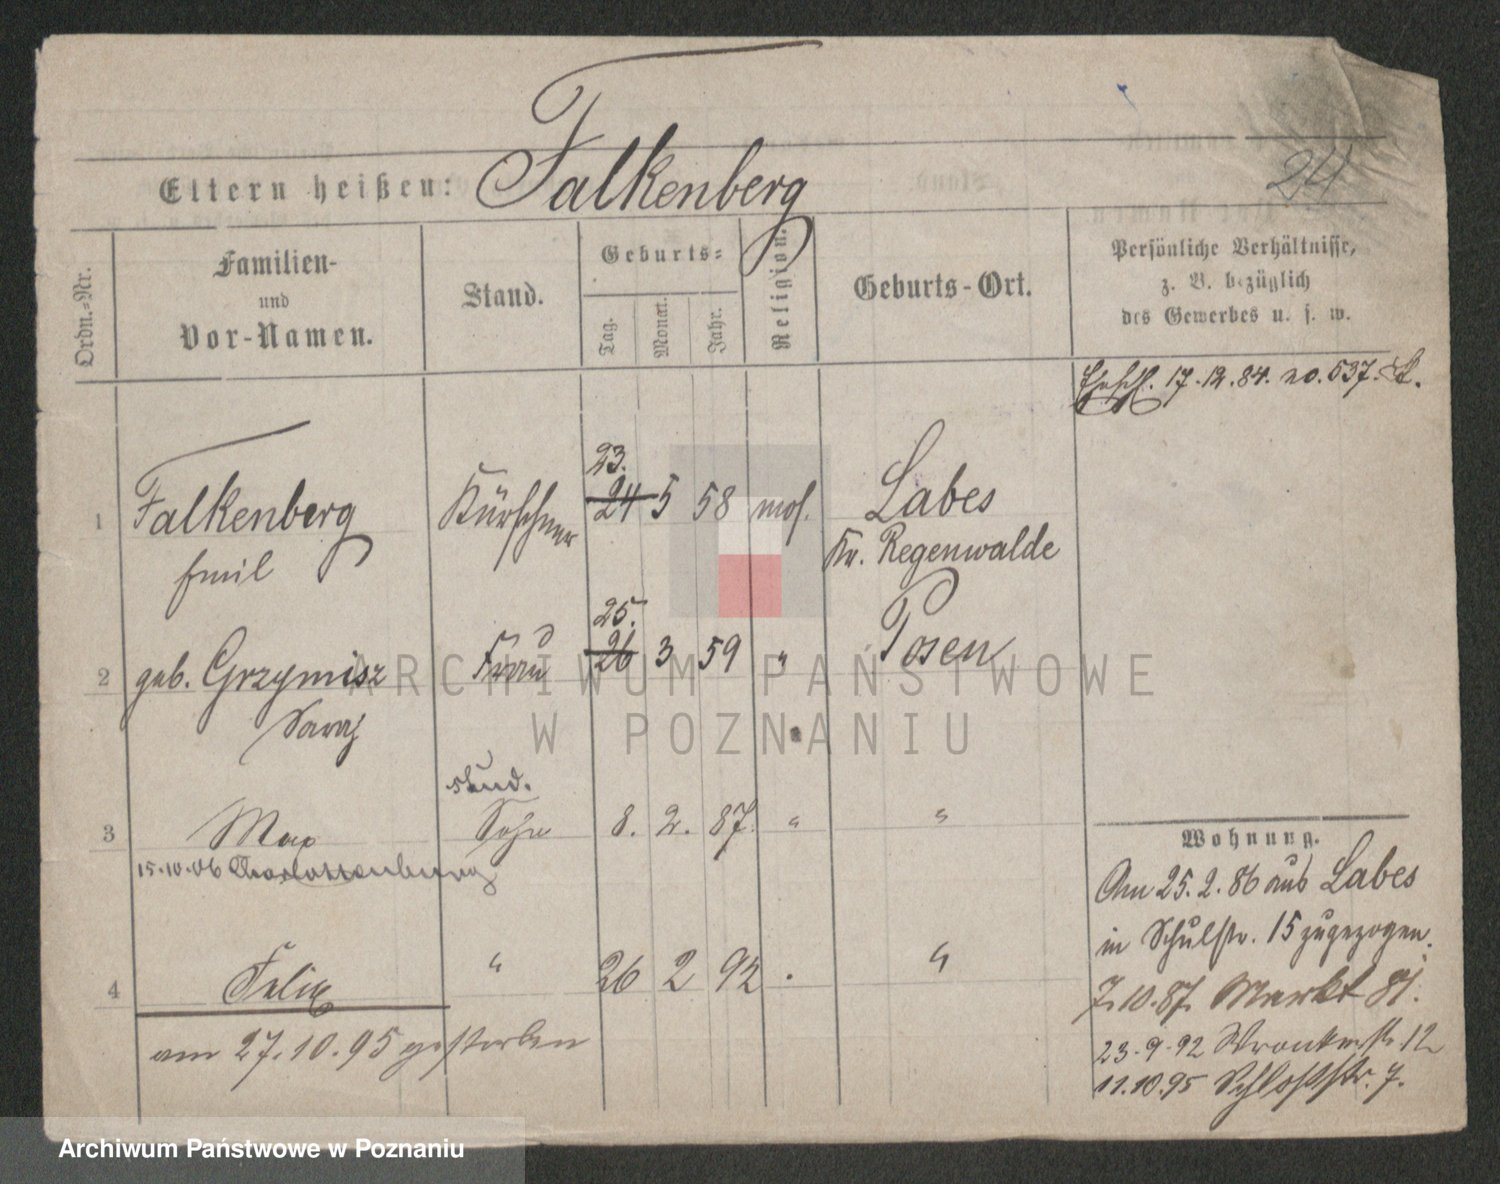 24
Eltern heißen: Falkenberg
Ordn.-Nr.
Familien-
und
Vor-Namen.
Stand.
Geburts-
Tag.
Monat.
Jahr.
Religion.
Geburts-Ort.
Persönliche Verhältnisse,
z. B. bezüglich
des Gewerbes u. s. w.
17.12.84. no. 537.
23.
1 Falkenberg Kürschner 24 5 58 mos. Labes
Emil Kr. Regenwalde
25.
2 geb. Grzymisz Frau 26 3 59 " Posen
Sara
stud.
3 Max Sohn 8. 2. 87. " "
15.10.06 Charlottenburg
4 Felix " 26 2 92 . "
am 27.10.95 gestorben
Wohnung.
Am 25.2.86 aus Labes
in Schulstr. 15 zugezogen.
7.10.87. Markt 81.
23.9.92 Wronkerstr. 12
11.10.95 Schloßstr. 7.
ARCHIWUM PAŃSTWOWE
W POZNANIU
Archiwum Państwowe w Poznaniu